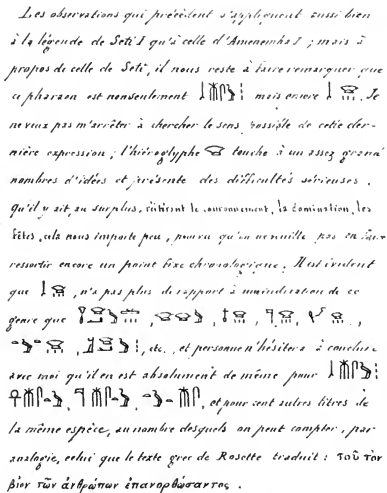 Les observations qui précèdent s'appliquent aussi bien
à la légende de Seti I qu'à celle d'Amenemha I ; mais à
propos de celle de Seti, il nous reste à faire remarquer que
ce pharaon est nonseulement mais encore . Je
ne veux pas m'arrêter à chercher le sens possible de cette der-
nière expression ; l'hiéroglyphe touche à un assez grand
nombres d'idées et présente des difficultés sérieuses.
Qu'il y ait, au surplus, le couronnement, la domination, les
fêtes, cela nous importe peu, pourvu qu'on ne veuille pas en faire
ressortir encore un point fixe chronologique. Il est évident
que n'a pas plus de rapport à une indication de ce
genre que , , , , ,
, , etc. et personne n'hésitera à conclure
avec moi qu'il en est absolument de même pour
, , , et pour cent autres titres de
la même espèce, au nombre desquels on peut compter, par
analogie, celui que le texte grec de Rosette traduit : τοῦ τὸν
βίον τῶν ἀνθρώπων ἐπανορθώσαντος .